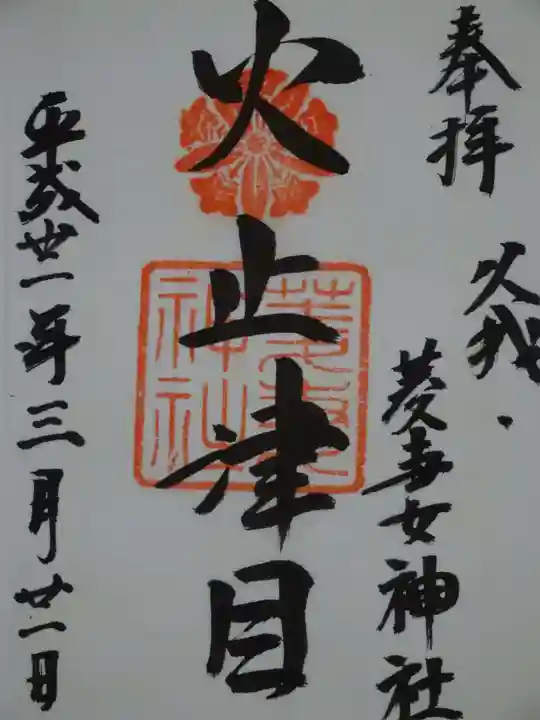 奉拝
久我・
菱妻女神社
火止津目
菱妻
神社
平成廿一年三月廿一日